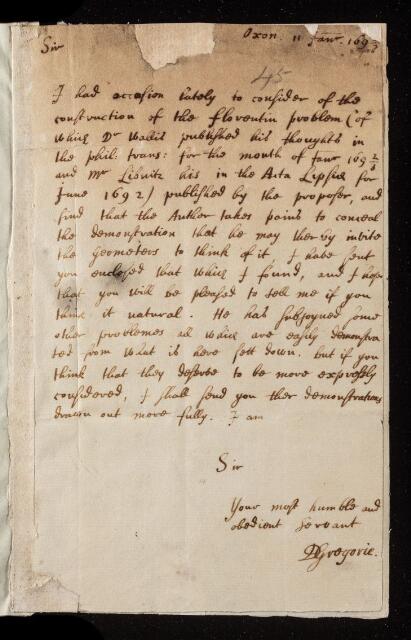 Oxon. 11 Janr. 169
Sir
45
I had occasion lately to consider of the
construction of the florentin problem (of
which Dr Wallis published his thoughts in
the phil: trans: for the month of Janr 169 2/3
and Mr Libnitz his in the Acta Lipsiæ for
June 1692) published by the proposer, and
find that the Author takes pains to conceal
the demonstration that he may therby invite
the geometers to think of it, I have sent
you enclosed that which I found, and I hope
that you will be pleased to tell me if you
think it natural. He has subjoyned some
other problemes all which are easily demonstra
ted from what is here sett down. but if you
think that they deserve to be more expressly
considered, I shall send you ther demonstrations
drawn out more fully. I am
Sir
Your most humble and
obedient servant
DGregorie.